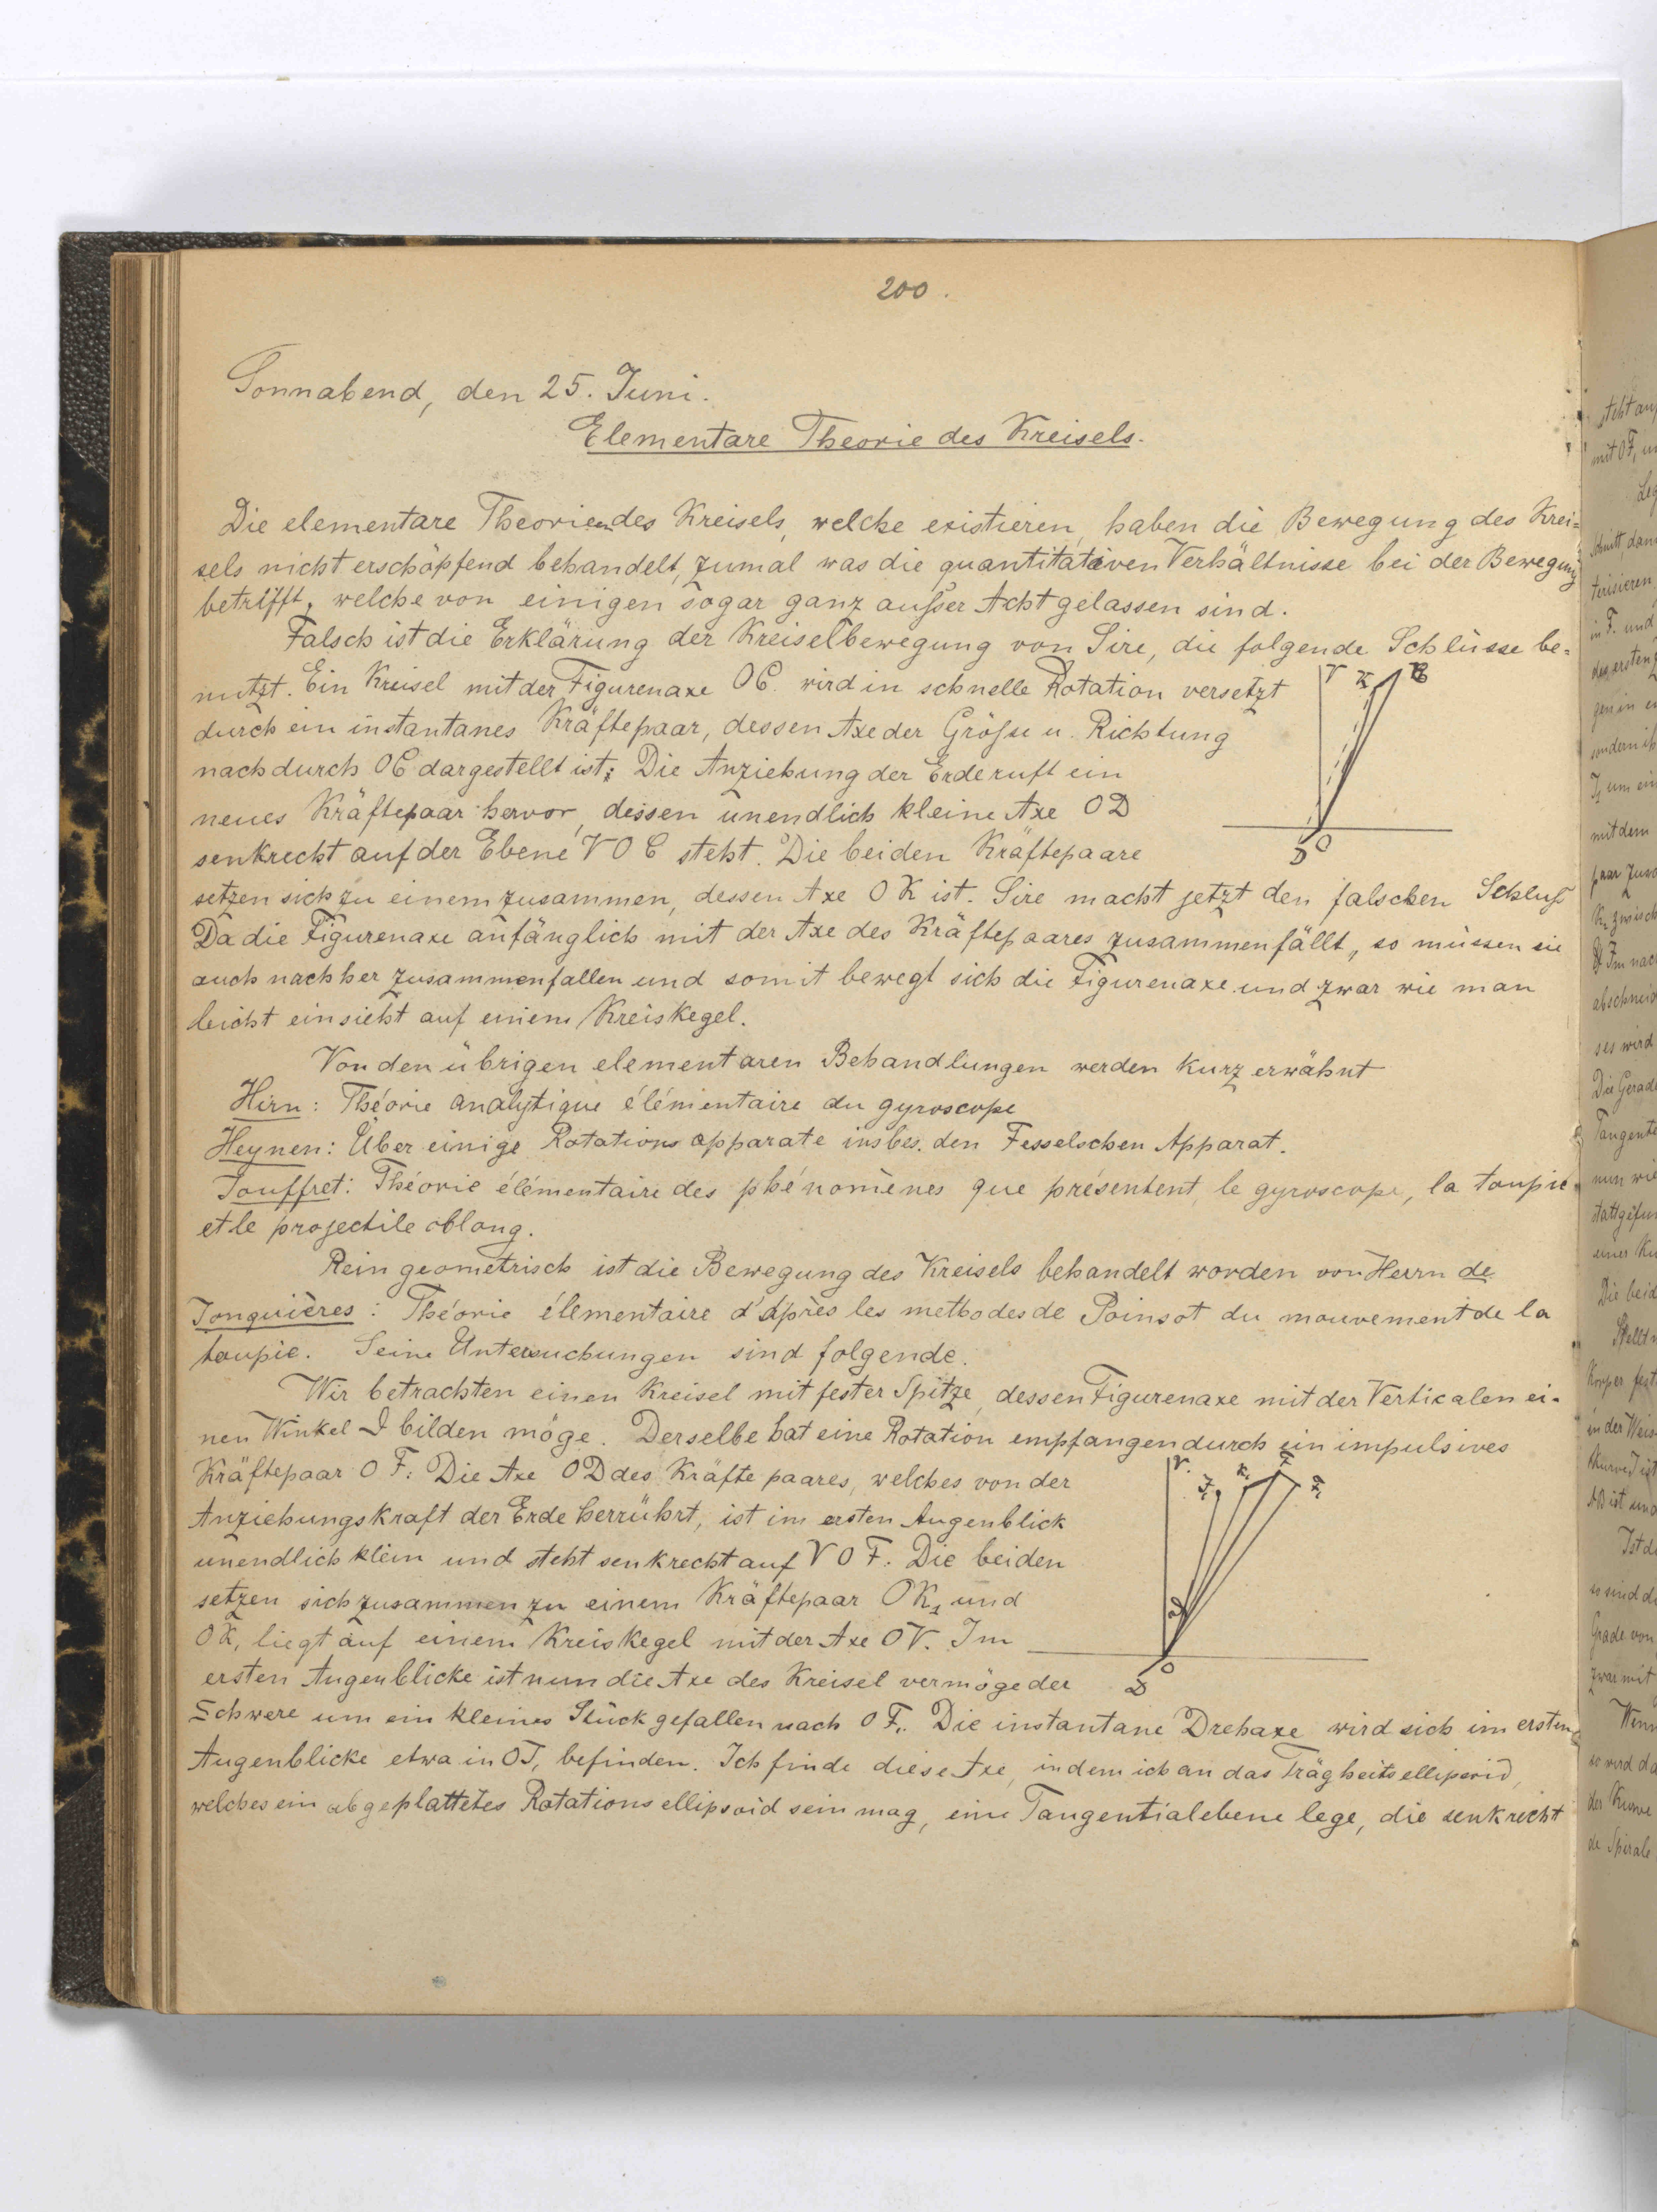 200.
Sonnabend, den 25. Juni.
Elementare Theorie des Kreisels.
Die elementare Theorien des Kreisels, welche existieren, haben die Bewegung des Krei=
sels nicht erschöpfend behandelt, zumal was die quantitativen Verhältnisse bei der Bewegung
betrifft, welche von einigen sogar ganz außer Acht gelassen sind.
Falsch ist die Erklärung der Kreiselbewegung von Sire, die folgende Schlüsse be=
nutzt. Ein Kreisel mit der Figurenaxe OC. wird in schnelle Rotation versetzt
durch ein instantanes Kräftepaar, dessen Axe der Größe u. Richtung
nach durch OC dargestellt ist; Die Anziehung der Erde ruft ein
neues Kräftepaar hervor, dessen unendlich kleine Axe OD
senkrecht auf der Ebene VOC steht. Die beiden Kräftepaare
setzen sich zu einem zusammen, dessen Axe OK ist. Sire macht jetzt den falschen Schluß
Da die Figurenaxe anfänglich mit der Axe des Kräftepaares zusammenfällt, so müssen sie
auch nachher zusammenfallen und somit bewegt sich die Figurenaxe und zwar wie man
leicht einsieht auf einem Kreiskegel.
V K C
D O
Von den übrigen elementaren Behandlungen werden kurz erwähnt
Hirn: Théorie analytique élémentaire du gyroscope
Heynen: Über einige Rotations apparate insbes. den Fesselschen Apparat.
Jouffret: Théorie élémentaire des phénomènes que présentent le gyroscope, la toupie
et le projectile oblong.
Rein geometrisch ist die Bewegung des Kreisels behandelt worden von Herrn de
Jonquières: Théorie élementaire d'après les methodes de Poinsot du mouvement de la
toupie. Seine Untersuchungen sind folgende.
Wir betrachten einen Kreisel mit fester Spitze, dessen Figurenaxe mit der Verticalen ei-
nen Winkel ϑ bilden möge. Derselbe hat eine Rotation empfangen durch ein impulsives
Kräftepaar OF. Die Axe OD des Kräftepaares, welches von der
Anziehungskraft der Erde herrührt, ist im ersten Augenblick
unendlich klein und steht senkrecht auf VOF. Die beiden
setzen sich zusammen zu einem Kräftepaar OK₁ und
OK, liegt auf einem Kreiskegel mit der Axe OV. Im
ersten Augenblicke ist nun die Axe des Kreisel vermöge der
Schwere um ein kleines Stück gefallen nach OF₁. Die instantane Drehaxe wird sich im ersten
Augenblicke etwa in OJ₁ befinden. Ich finde diese Axe, indem ich an das Trägheitsellipsoid,
welches ein abgeplattetes Rotationsellipsoid sein mag, eine Tangentialebene lege, die senkrecht
V. J₁ K₁ F F₁
ϑ
D O